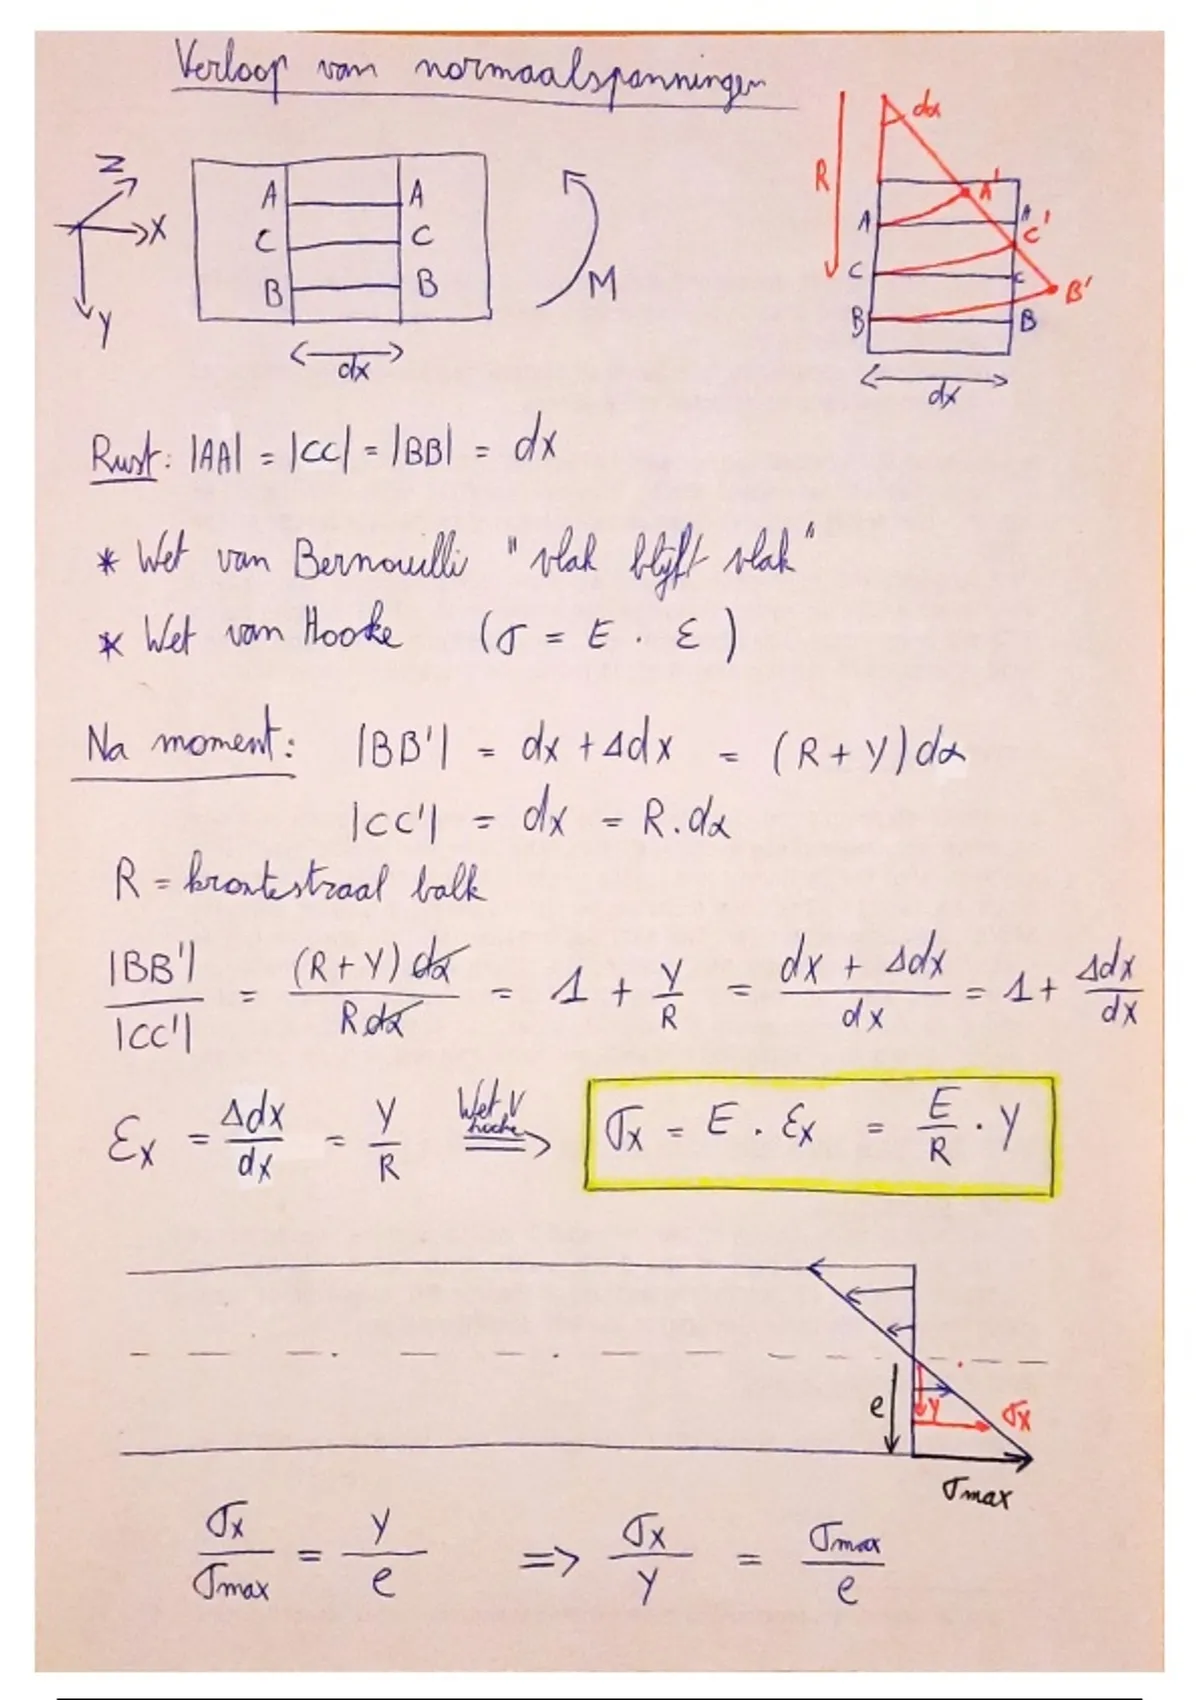 Verloop van normaalspanningen
Z
X
Y
A A
C C
B B
dx
M
dα
R
A A' A
C C' C
B B' B
dx
Rust: |AA| = |CC| = |BB| = dx
* Wet van Bernouilli "vlak blijft vlak"
* Wet van Hooke (σ = E . ε)
Na moment: |BB'| = dx + Δdx = (R + Y) dα
|CC'| = dx = R.dα
R = kromtestraal balk
|BB'| / |CC'| = (R + Y) dα / R dα = 1 + Y/R = (dx + Δdx) / dx = 1 + Δdx/dx
εx = Δdx/dx = Y/R Wet v hooke => σx = E . εx = E/R . Y
e Y σx
σmax
σx/σmax = Y/e => σx/Y = σmax/e